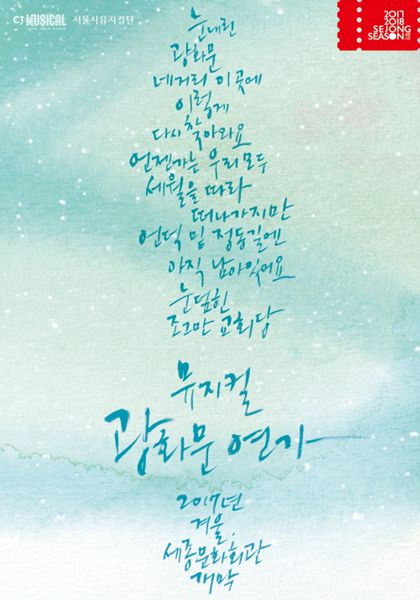 CJ MUSICAL 서울시뮤지컬단
2017
2018
SEJONG
SEASON
눈내린
광화문
네거리 이곳에
이렇게
다시 찾아와요
언젠가는 우리 모두
세월을 따라
떠나가지만
언덕 밑 정동길엔
아직 남아있어요
눈덮힌
조그만 교회당
뮤지컬
광화문 연가
2017년
겨울,
세종문화회관
개막